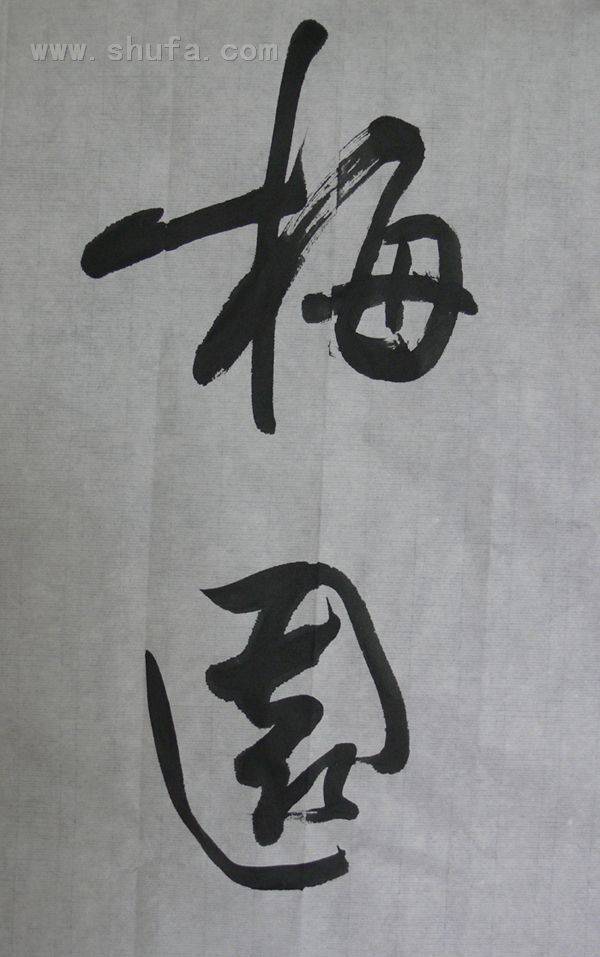 www.shufa.com
梅
園